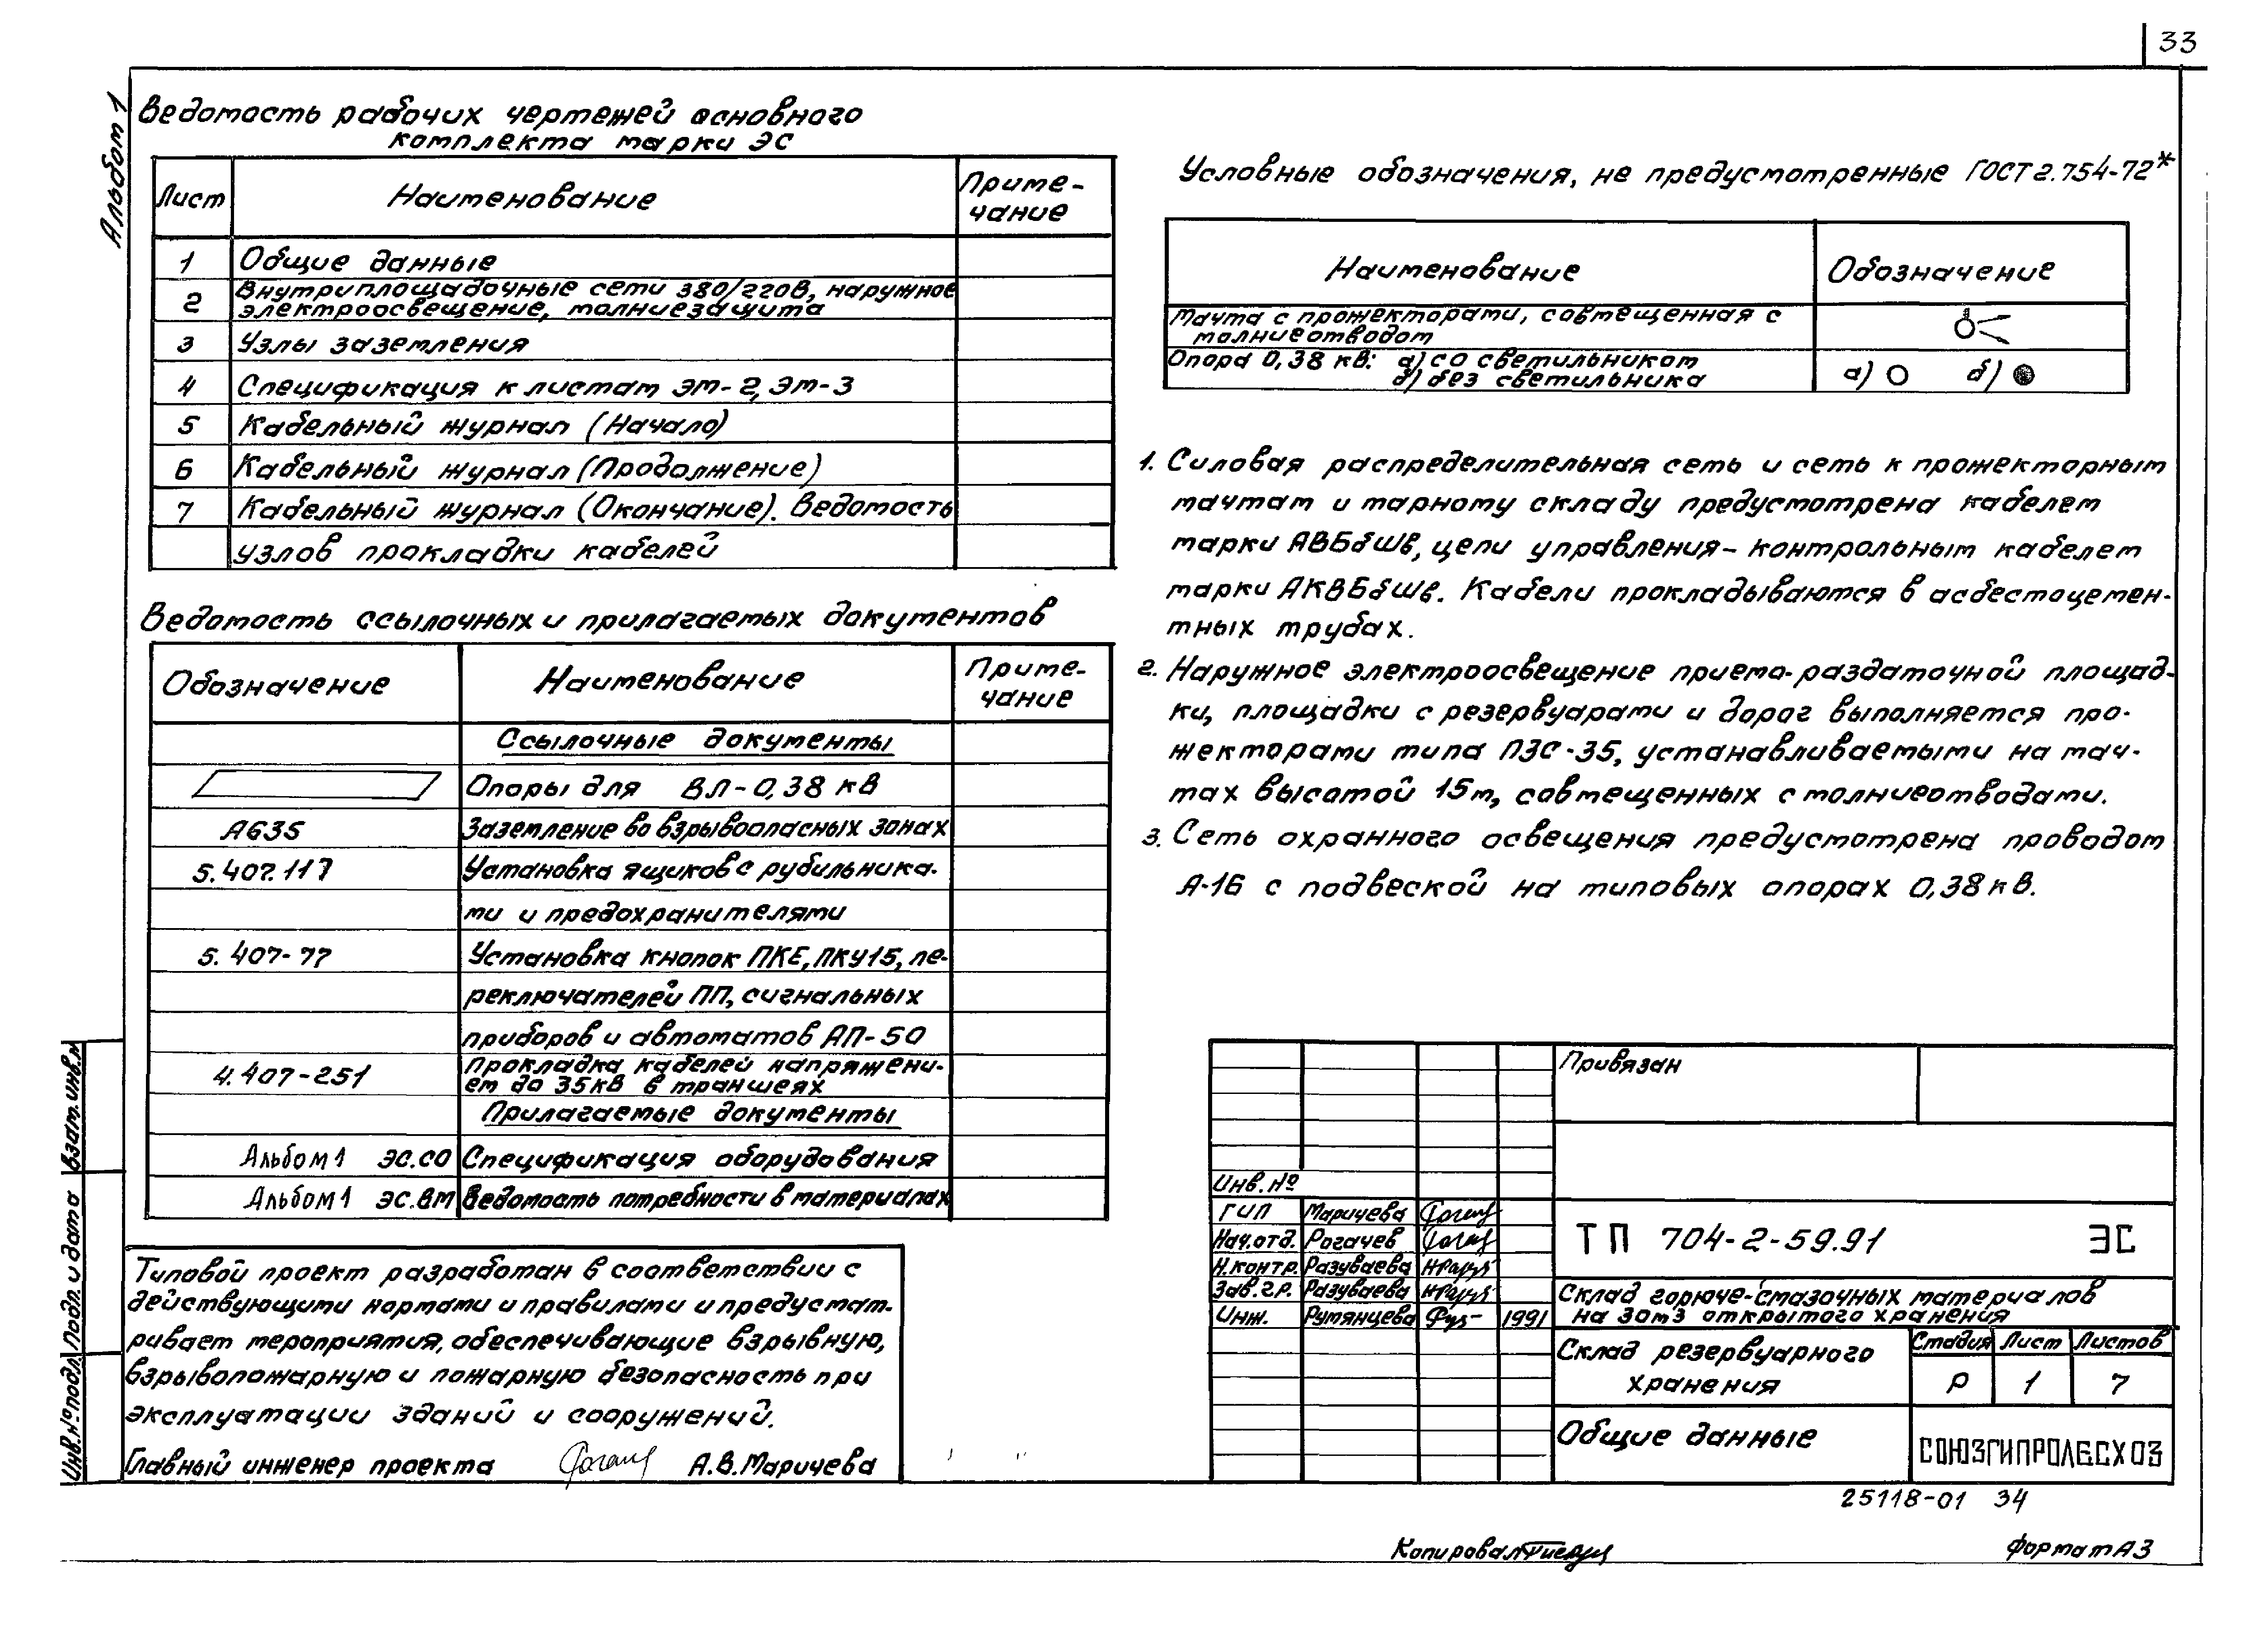 33
Альбом 1
Ведомость рабочих чертежей основного
комплекта марки ЭС
Лист Наименование Приме-
чание
1 Общие данные
2 Внутриплощадочные сети 380/220В, наружное
электроосвещение, молниезащита
3 Узлы заземления
4 Спецификация к листам ЭМ-2, ЭМ-3
5 Кабельный журнал (Начало)
6 Кабельный журнал (Продолжение)
7 Кабельный журнал (Окончание). Ведомость
узлов прокладки кабелей
Ведомость ссылочных и прилагаемых документов
Обозначение Наименование Приме-
чание
Ссылочные документы
Опоры для ВЛ-0,38 кВ
А635 Заземление во взрывоопасных зонах
5.407.117 Установка ящиков с рубильника-
ми и предохранителями
5.407-77 Установка кнопок ПКЕ, ПКУ15, пе-
реключателей ПП, сигнальных
приборов и автоматов АП-50
4.407-251 Прокладка кабелей напряжени-
ем до 35кВ в траншеях
Прилагаемые документы
Альбом 1 ЭС.СО Спецификация оборудования
Альбом 1 ЭС.ВМ Ведомость потребности в материалах
Типовой проект разработан в соответствии с
действующими нормами и правилами и предусмат-
ривает мероприятия, обеспечивающие взрывную,
взрывопожарную и пожарную безопасность при
эксплуатации зданий и сооружений.
Главный инженер проекта А.В.Маричева
Инв.№подл. Подп. и дата Взам.инв.№
Условные обозначения, не предусмотренные ГОСТ 2.754-72*
Наименование Обозначение
Мачта с прожекторами, совмещенная с
молниеотводом
Опора 0,38 кВ: а) со светильником
б) без светильника
а) б)
1. Силовая распределительная сеть и сеть к прожекторным
мачтам и тарному складу предусмотрена кабелем
марки АВБбШв, цепи управления - контрольным кабелем
марки АКВБбШв. Кабели прокладываются в асбестоцемен-
тных трубах.
2. Наружное электроосвещение приемо-раздаточной площад-
ки, площадки с резервуарами и дорог выполняется про-
жекторами типа ПЗС-35, устанавливаемыми на мач-
тах высотой 15м, совмещенных с молниеотводами.
3. Сеть охранного освещения предусмотрена проводом
А-16 с подвеской на типовых опорах 0,38 кВ.
Привязан
Инв. №
ГИП Маричева
Нач.отд. Рогачев
Н.контр. Разуваева
Зав.гр. Разуваева
Инж. Румянцева 1991
ТП 704-2-59.91 ЭС
Склад горюче-смазочных материалов
на 30м3 открытого хранения
Склад резервуарного
хранения
Стадия Лист Листов
Р 1 7
Общие данные
СОЮЗГИПРОЛЕСХОЗ
25118-01 34
Копировал
Формат А3